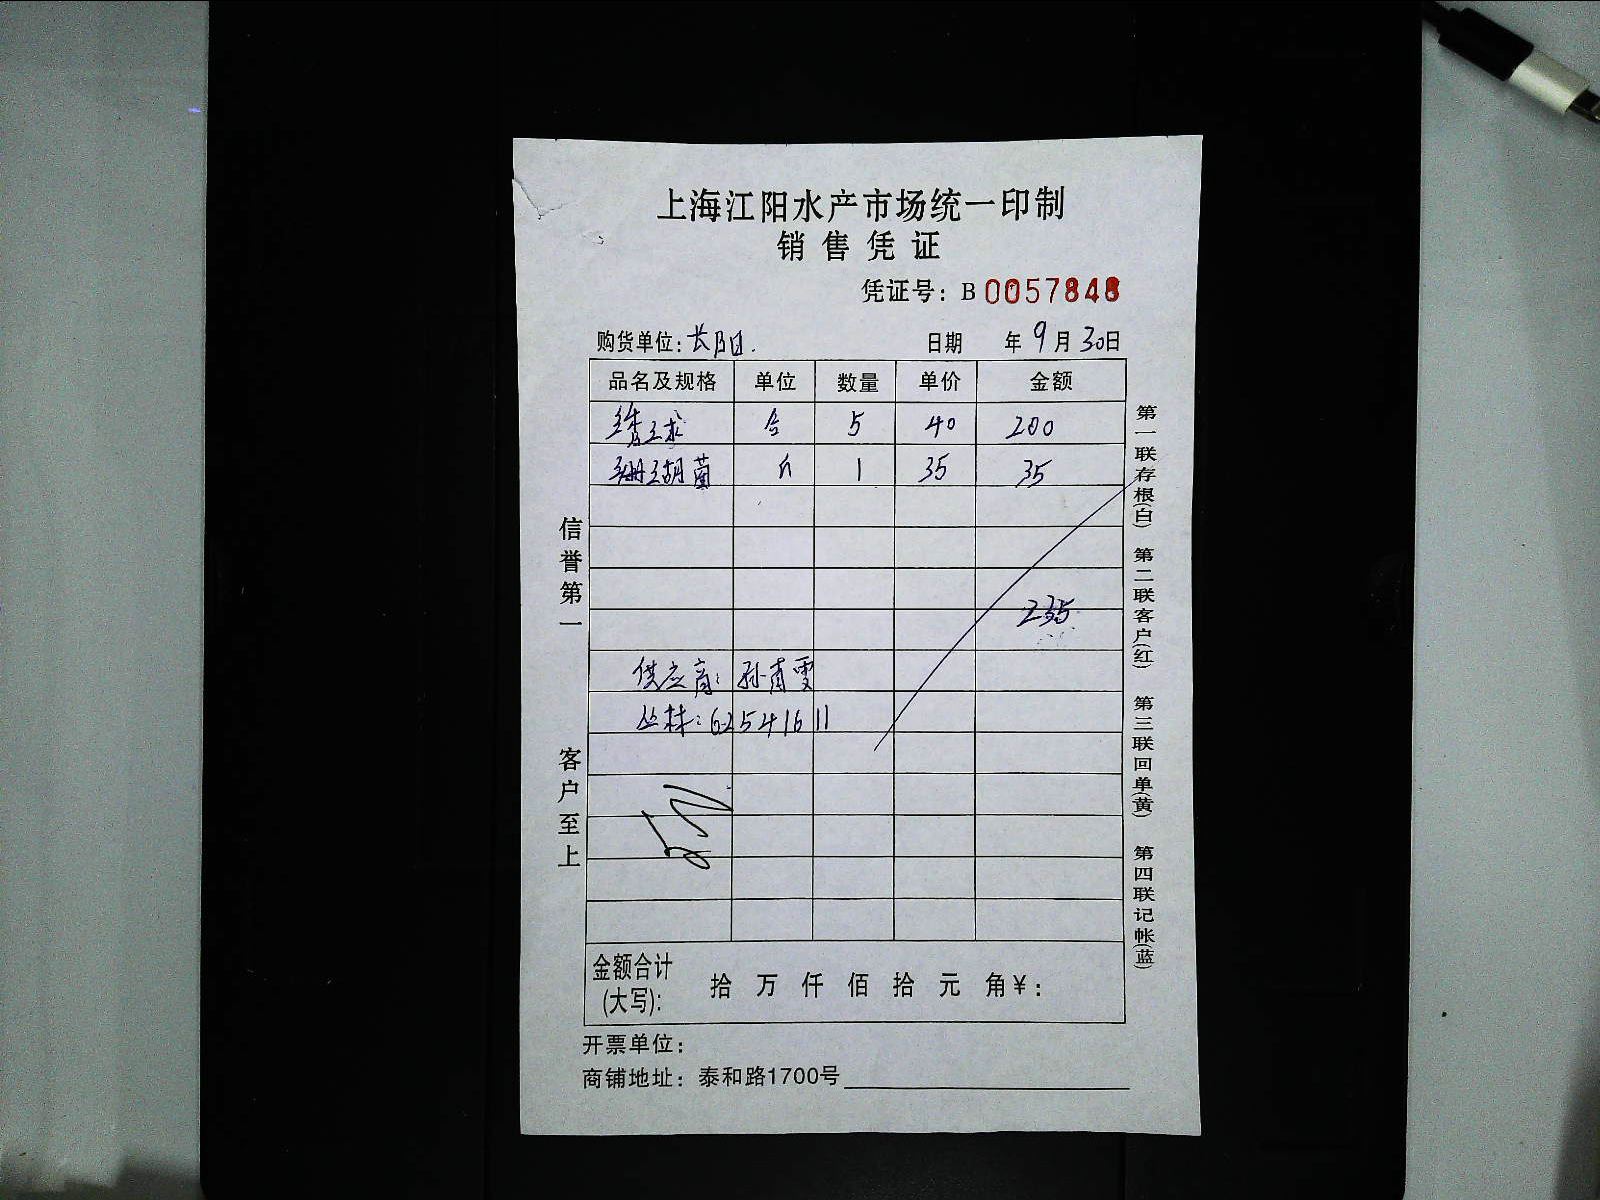 上海江阳水产市场统一印制
销售凭证
凭证号：B 0057848
购货单位：长阳.
日期 年 9 月 30 日
品名及规格 单位 数量 单价 金额
球 合 5 40 200
珊瑚菌 斤 1 35 35
235
供应商：孙甫雯
丛林：62541611
金额合计(大写)： 拾 万 仟 佰 拾 元 角 ¥：
开票单位：
商铺地址：泰和路1700号
信誉第一 客户至上
第一联存根(白) 第二联客户(红) 第三联回单(黄) 第四联记帐(蓝)